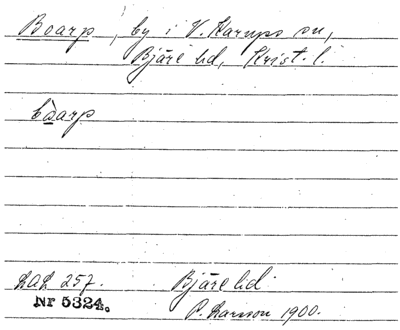 Boarp, by i V. Karups sn,
Bjäre hd, Krist. l.
boarp
LAL 257. Bjäre hd
Nr 5324. P. Larsson 1900.